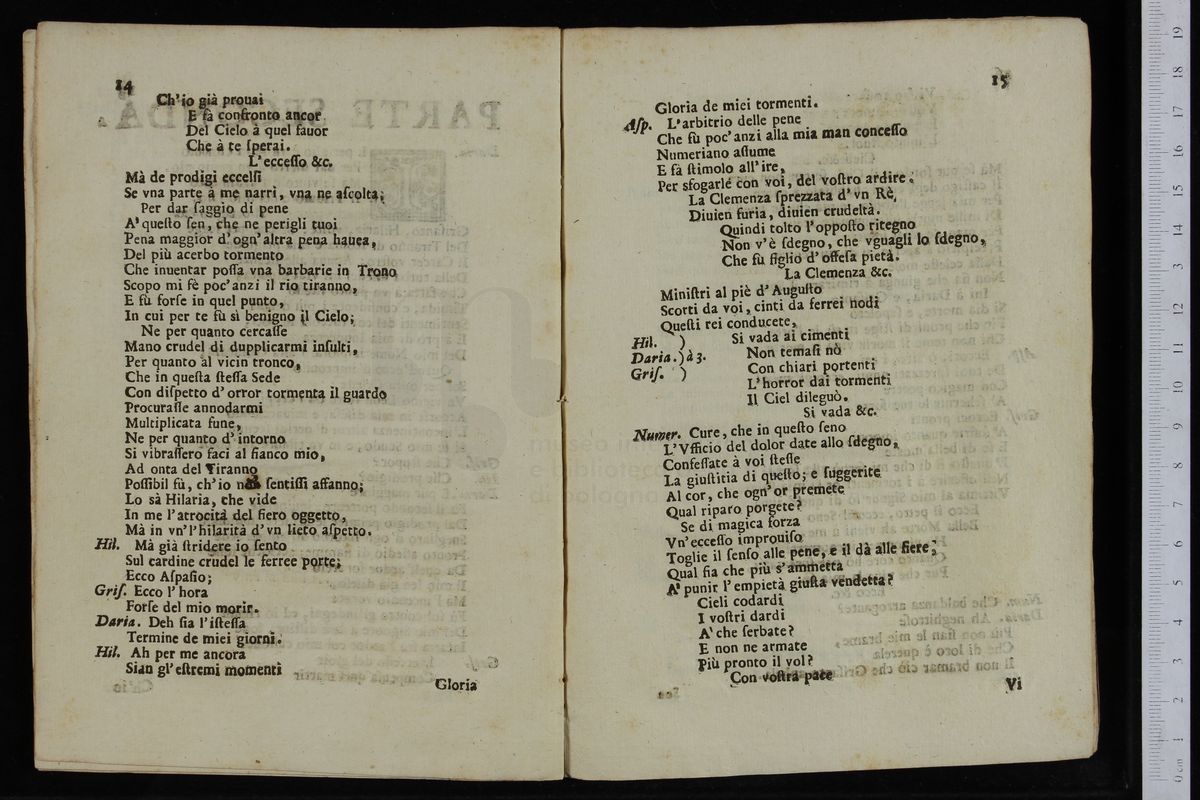 14
Ch'io già prouai
E fà confronto ancor
Del Cielo à quel fauor
Che à te ſperai.
L'ecceſſo &c.
Mà de prodigi eccelſi
Se vna parte à me narri, vna ne aſcolta;
Per dar ſaggio di pene
A' queſto ſen, che ne perigli tuoi
Pena maggior d'ogn'altra pena hauea,
Del più acerbo tormento
Che inuentar poſſa vna barbarie in Trono
Scopo mi fè poc'anzi il rio tiranno,
E fù forſe in quel punto,
In cui per te fù sì benigno il Cielo;
Ne per quanto cercaſſe
Mano crudel di dupplicarmi inſulti,
Per quanto al vicin tronco,
Che in queſta ſteſſa Sede
Con diſpetto d'orror tormenta il guardo
Procuraſſe annodarmi
Multiplicata fune,
Ne per quanto d'intorno
Si vibraſſero faci al fianco mio,
Ad onta del Tiranno
Poſſibil fù, ch'io ſentiſſi affanno;
Lo sà Hilaria, che vide
In me l'atrocità del fiero oggetto,
Mà in vn'l'hilarità d'vn lieto aſpetto.
Hil. Mà già ſtridere io ſento
Sul cardine crudel le ferree porte;
Ecco Aſpaſio;
Griſ. Ecco l'hora
Forſe del mio morir.
Daria. Deh ſia l'iſteſſa
Termine de miei giorni.
Hil. Ah per me ancora
Sian gl'eſtremi momenti
Gloria
15
Gloria de miei tormenti.
Aſp. L'arbitrio delle pene
Che fù poc'anzi alla mia man conceſſo
Numeriano aſſume
E fà ſtimolo all'ire,
Per sfogarle con voi, del voſtro ardire.
La Clemenza ſprezzata d'vn Rè,
Diuien furia, diuien crudeltà.
Quindi tolto l'oppoſto ritegno
Non v'è ſdegno, che vguagli lo ſdegno,
Che fù figlio d'offeſa pietà.
La Clemenza &c.
Miniſtri al piè d'Auguſto
Scorti da voi, cinti da ferrei nodi
Queſti rei conducete,
Hil. ) Si vada ai cimenti
Daria. ) à 3. Non temaſi nò
Griſ. ) Con chiari portenti
L'horror dai tormenti
Il Ciel dileguò.
Si vada &c.
Numer. Cure, che in queſto ſeno
L'Vfficio del dolor date allo ſdegno,
Confeſſate à voi ſteſſe
La giuſtitia di queſto; e ſuggerite
Al cor, che ogn'or premete
Qual riparo porgete?
Se di magica forza
Vn'ecceſſo improuiſo
Toglie il ſenſo alle pene, e il dà alle fiere;
Qual ſia che più s'ammetta
A' punir l'empietà giuſta vendetta?
Cieli codardi
I voſtri dardi
A' che ſerbate?
E non ne armate
Più pronto il vol?
Con voſtra pace
Vi